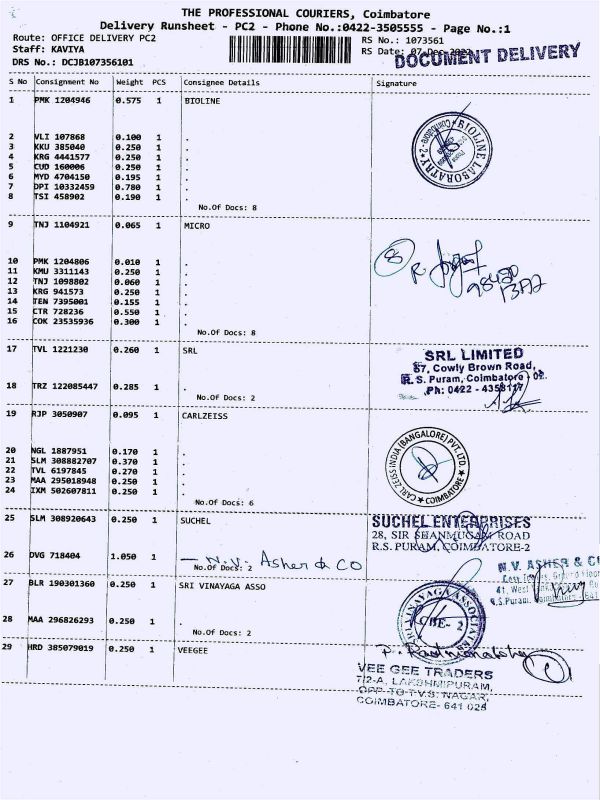 THE PROFESSIONAL COURIERS, Coimbatore
Delivery Runsheet - PC2 - Phone No.:0422-3505555 - Page No.:1
Route: OFFICE DELIVERY PC2
RS No.: 1073561
Staff: KAVIYA
RS Date: 07 Dec
DOCUMENT DELIVERY
DRS No.: DCJB107356101
S No Consignment No Weight PCS Consignee Details Signature
1 PMK 1204946 0.575 1 BIOLINE
BIOLINE LABORATRY * Coimbatore - 2 *
2 VLI 107868 0.100 1 .
3 KKU 385040 0.250 1 .
4 KRG 4441577 0.250 1 .
5 CUD 160006 0.250 1 .
6 MYD 4704150 0.195 1 .
7 DPI 10332459 0.780 1 .
8 TSI 458902 0.190 1 .
No.Of Docs: 8
9 TNJ 1104921 0.065 1 MICRO
8
R.
10 PMK 1204806 0.010 1 .
11 KMU 3311143 0.250 1 .
12 TNJ 1098802 0.060 1 .
13 KRG 941573 0.250 1 .
14 TEN 7395001 0.155 1 .
15 CTR 728236 0.550 1 .
16 COK 23535936 0.300 1 .
No.Of Docs: 8
17 TVL 1221230 0.260 1 SRL
SRL LIMITED
87, Cowly Brown Road,
R. S. Puram, Coimbatore - 02.
Ph: 0422 - 4358117
18 TRZ 122085447 0.285 1 .
No.Of Docs: 2
19 RJP 3050907 0.095 1 CARLZEISS
CARL ZEISS INDIA (BANGALORE) PVT. LTD. * COIMBATORE *
20 NGL 1887951 0.170 1 .
21 SLM 308882707 0.370 1 .
22 TVL 6197845 0.270 1 .
23 MAA 295018948 0.250 1 .
24 IXM 502607811 0.250 1 .
No.Of Docs: 6
25 SLM 308920643 0.250 1 SUCHEL
SUCHEL ENTERPRISES
28, SIR SHANMUGAM ROAD
R.S. PURAM, COIMBATORE-2
26 DVG 718404 1.050 1 — N.V. Asher & CO
No.Of Docs: 2
N.V. ASHER & CO
41, West
R.S.Puram, Coimbatore - 641
27 BLR 190301360 0.250 1 SRI VINAYAGA ASSO
VINAYAGA ASSOCIATES
CBE - 2
28 MAA 296826293 0.250 1 .
No.Of Docs: 2
29 HRD 385079019 0.250 1 VEEGEE
P.
1
VEE GEE TRADERS
7/2-A, LAKSHMIPURAM,
OPP TO T.V.S. NAGAR,
COIMBATORE- 641 025